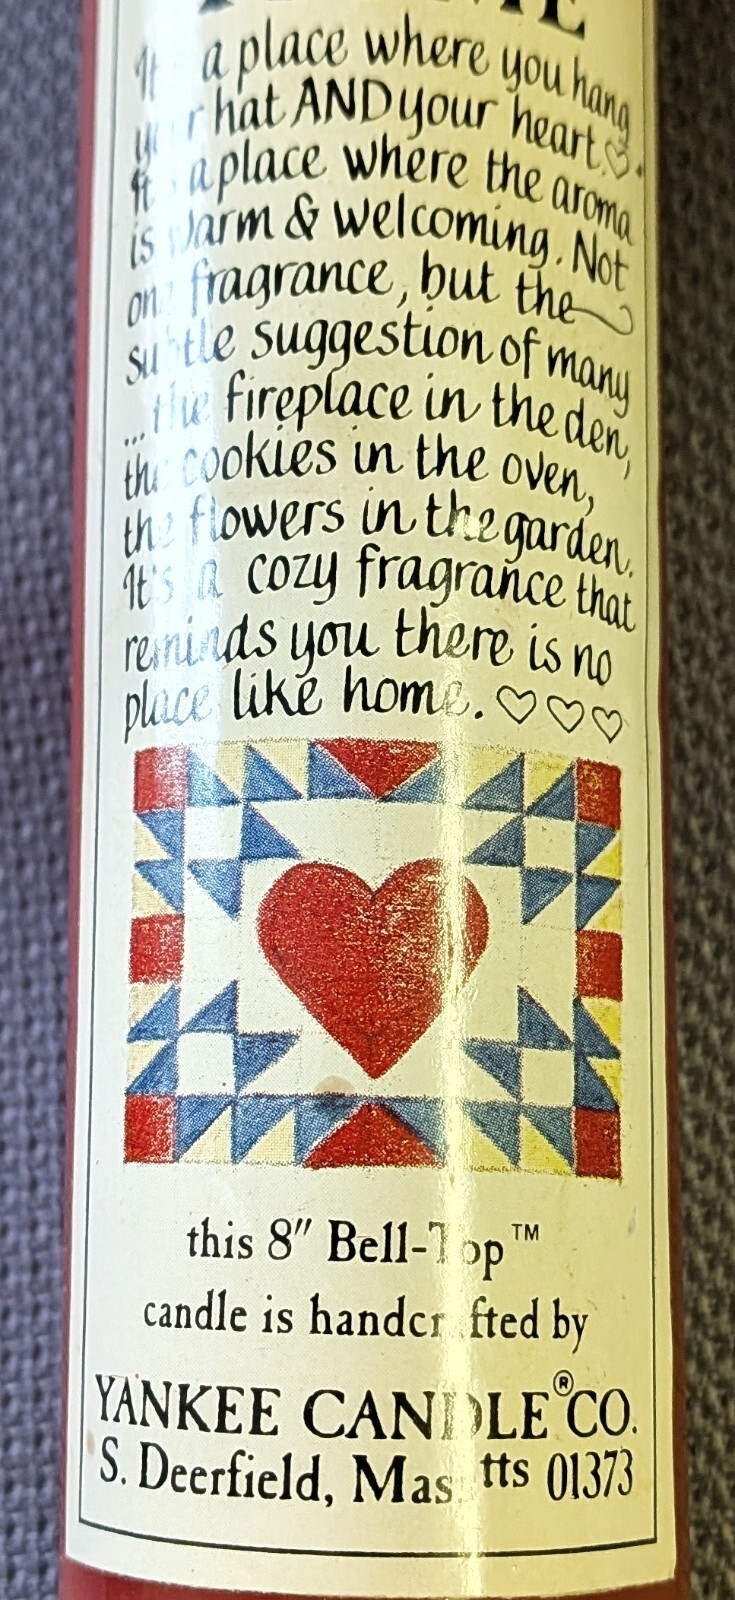 It's a place where you hang
your hat AND your heart.♡
It's a place where the aroma
is warm & welcoming. Not
one fragrance, but the
subtle suggestion of many
...the fireplace in the den,
the cookies in the oven,
the flowers in the garden.
It's a cozy fragrance that
reminds you there is no
place like home. ♡♡♡
this 8" Bell-Top™
candle is handcrafted by
YANKEE CANDLE® CO.
S. Deerfield, Mass 01373